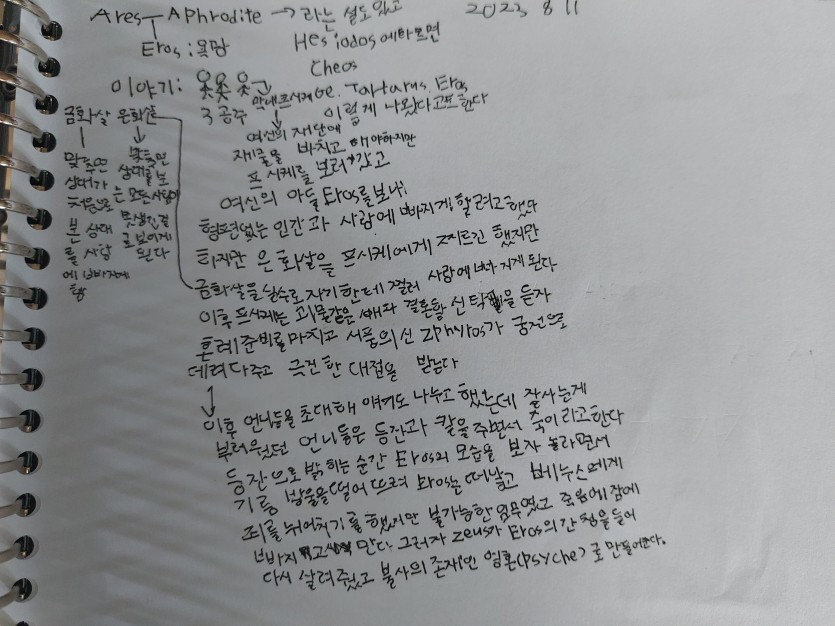 Ares - Aphrodite → 라는 설도 있고
2023 8 11
Eros : 욕망
Hesiodos에 따르면
Cheos
Ge. Tartarus. Eros
이렇게 나왔다고도 한다
이야기:
3 공주
막내 프시케
금화살 은화살
맞추면
상대가
처음으로
본 상대
를 사랑
에 빠지게
함
상대를 보
는 모든 사람이
못생긴걸
로 보이게
된다
여신의 재단에
제물을 바치고 해야하지만
프시케를 보러 갔고
여신의 아들 Eros를 보내
형편없는 인간과 사랑에 빠지게 할려고 했다
하지만 은화살을 프시케에게 찌르긴 했지만
금화살을 실수로 자기한테 찔러 사랑에 빠지게 된다
이후 프시케는 괴물같은 배와 결혼할 신탁을 듣자
혼례 준비를 마치고 서풍의 신 Zphyros가 궁전으로
데려다주고 극진한 대접을 받는다
이후 언니들을 초대해 얘기도 나누고 했는데 잘사는게
부러웠던 언니들은 등잔과 칼을 주면서 죽이라고 한다
등잔으로 밝히는 순간 Eros의 모습을 보자 놀라면서
기름 방울을 떨어뜨려 Eros는 떠났고 베누스에게
죄를 뉘어치기를 했지만 불가능한 임무였고 죽음에 잠에
빠지고 만다. 그러자 Zeus가 Eros의 간청을 들어
다시 살려줬고 불사의 존재인 영혼(Psyche)로 만들어준다.